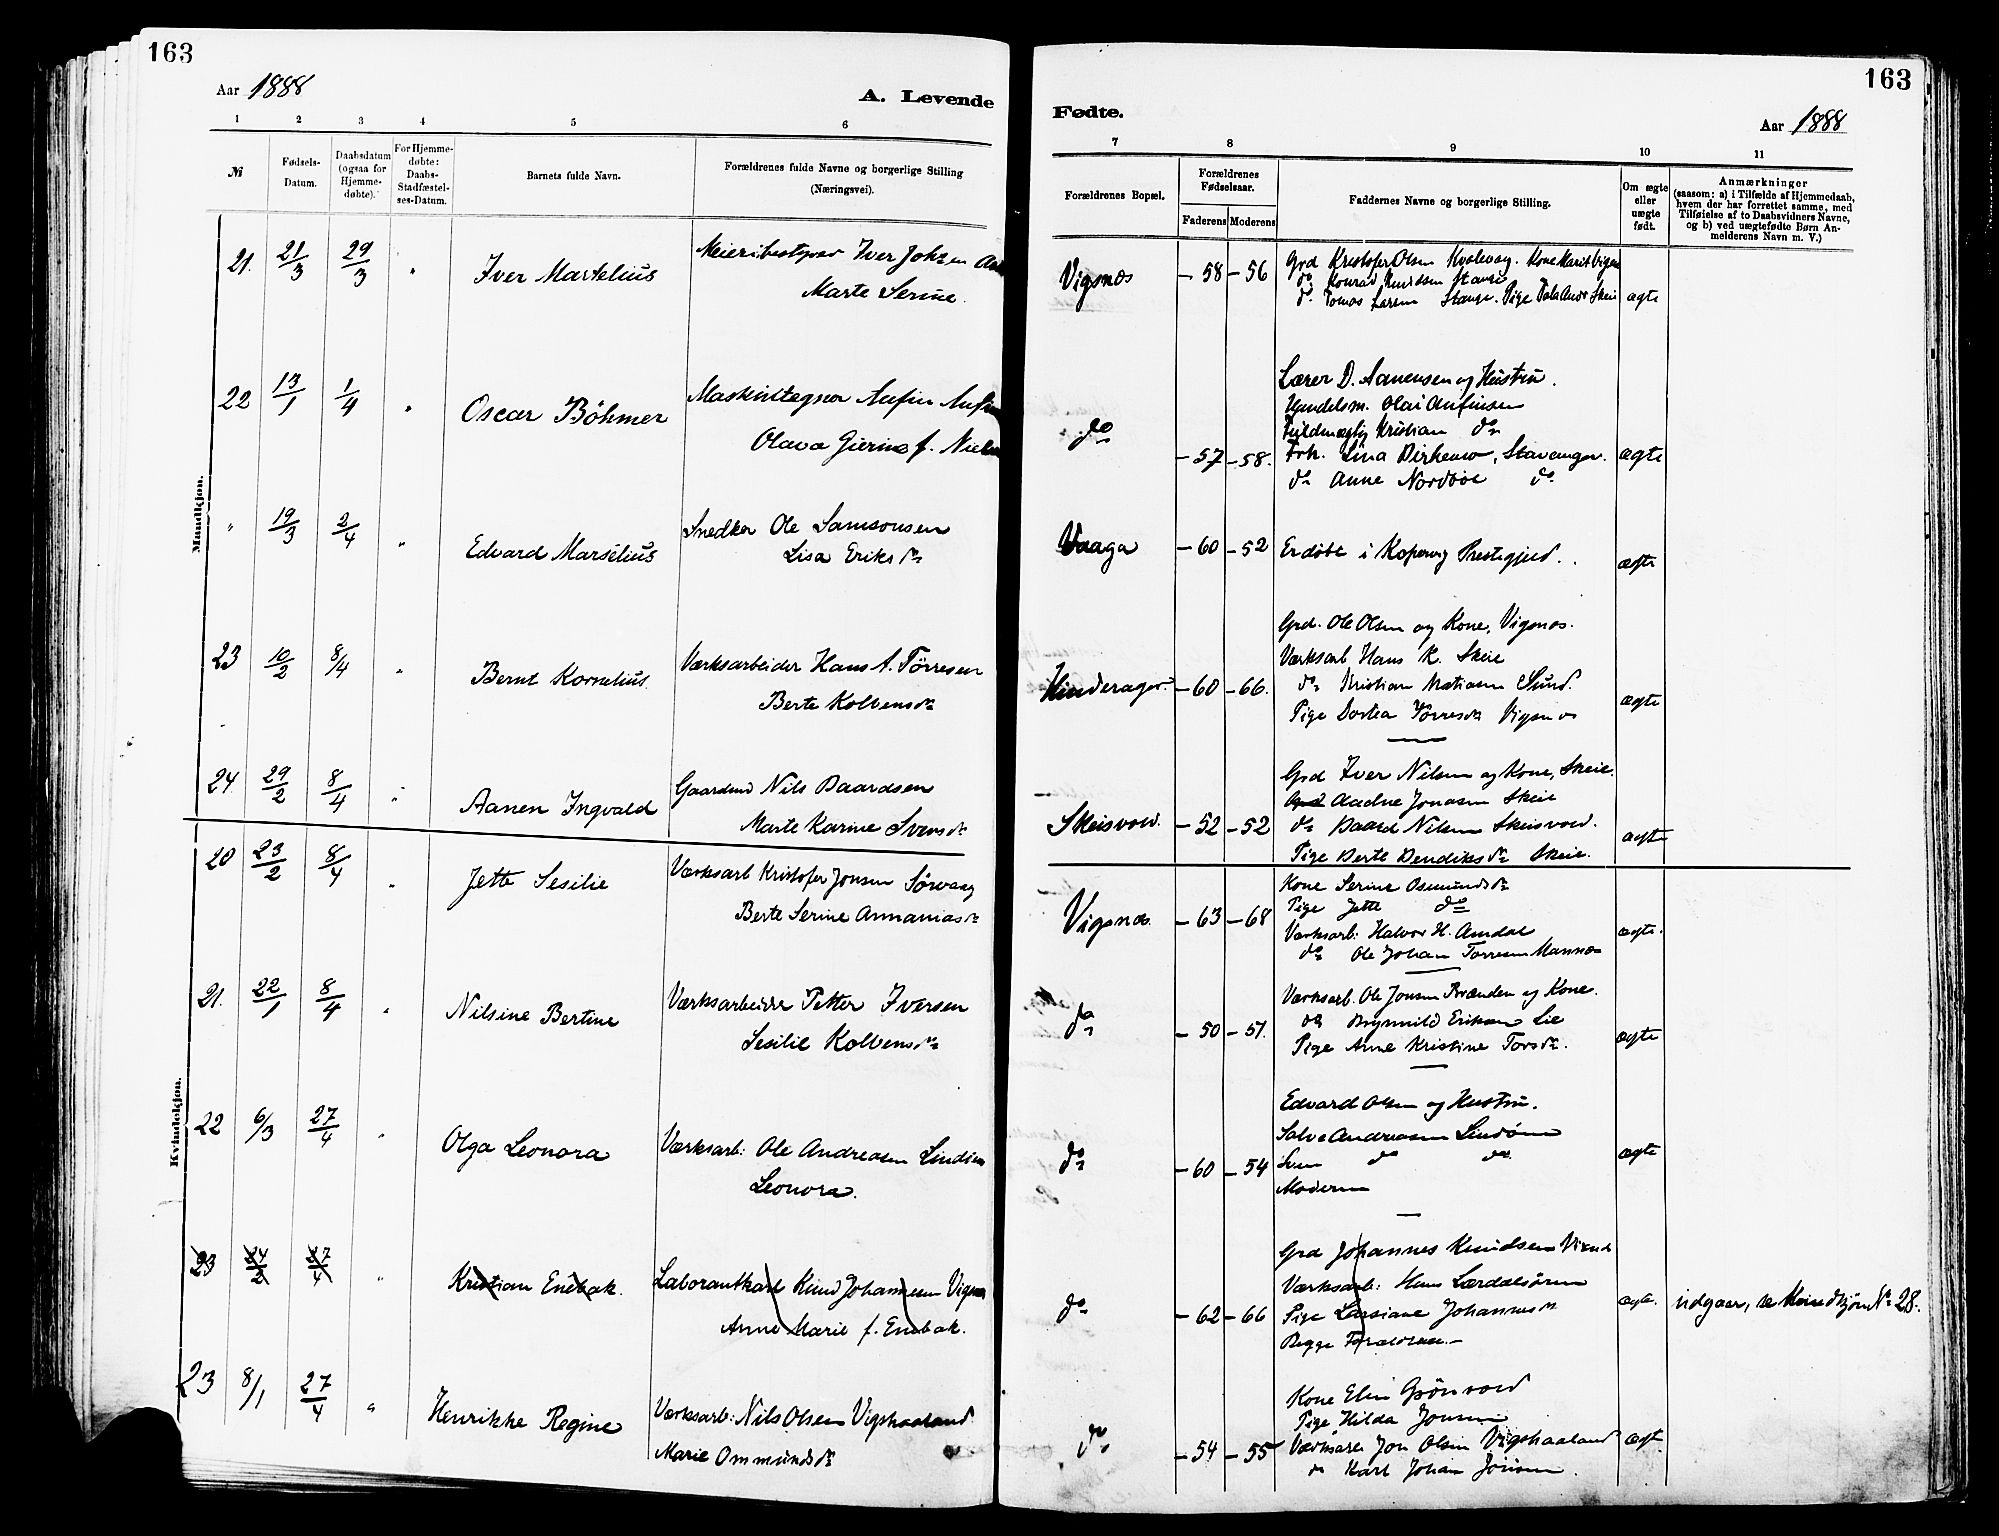 163
Aar 1888
A. Levende
1 2 3 4 5 6
№
Fødsels-
Datum.
Daabsdatum
(ogsaa for
Hjemme-
døbte).
For Hjemme-
døbte:
Daabs-
Stadfæstel-
ses-Datum.
Barnets fulde Navn.
Forældrenes fulde Navne og borgerlige Stilling
(Næringsvei).
Mandkjøn.
21. 21/3 29/3 " Iver Martelius
Meieribestyrer Iver Johsen
Marte Serine.
22 13/1 1/4 " Oscar Böhmer
Maskintegner Anfin
Olava Gierine f.
" 19/3 2/4 " Edvard Marselius
Snedker Ole Samsonsen
Lisa Eriksdr
23 10/2 8/4 " Bernt Kornelius.
Værksarbeider Hans A. Tørresen
Berte Kolbensdr
24 29/2 8/4 " Aanen Ingvald
Gaardmd Nils Baardsen
Marte Karine Svensdr
Kvindekjøn.
20 23/2 8/4 " Jette Sesilie
Værksarb Kristofer Jonsen Sørvaag
Berte Serine Annaniasdr
21. 22/1 8/4 " Nilsine Bertine
Værksarbeider Petter Iversen
Sesilie Kolbensdr
22 6/3 27/4 " Olga Leonora
Værksarb: Ole Andreasen
Leonora.
23 24/2 27/4 " Kristian Enebak.
Laborantkarl Knud Johannesen
Anne Marie f. Enebak.
23 8/1 27/4 " Henrikke Regine
Værksarb: Nils Olsen Vigshaaland
Marie Ommundsdr
163
Fødte.
Aar 1888
7 8 9 10 11
Forældrenes Bopæl.
Forældrenes
Fødselsaar.
Faderens Moderens
Faddernes Navne og borgerlige Stilling.
Om ægte
eller
uægte
født.
Anmærkninger
(saasom: a) i Tilfælde af Hjemmedaab,
hvem der har forrettet samme, med
Tilføielse af to Daabsvidners Navne,
og b) ved uægtefødte Børn An-
melderens Navn m. V.)
Vigsnæs – 58 – 56 ægte
Grd Kristofer Olsen Kvalevaag. Kone Marit
do Konrad Knudsen Stange
do Tomas Larsen Stange. Pige Skeie
do – 57 – 58. ægte
Lærer D. Aanensen og Hustru.
Handelsm. Olai Anfinsen
Fuldmægtig Kristian do
Frk. Lina Stavanger.
do Anne do
Vaaga – 60 – 52 Er døbt i Kopervig Prestegjeld. ægte
Hinderager. – 60 – 66. ægte
Grd. Ole Olsen og Kone, Vigsnæs.
Værksarb Hans K. Skeie
do Kristian Matiasen Sund.
Pige Dortea Tørresdr Vigsnæs
Skeisvold. – 52 – 52 ægte
Grd Iver Nilsen og Kone, Skeie.
Grd Aadne Jonasen Skeie
do Baard Nilsen Skeisvold.
Pige Berte Bendiksdr Skeie.
Vigsnæs. – 63 – 68 ægte.
Kone Serine Osmundsdr
Pige Jette do
Værksarb: Halvor H. Amdal
do Ole Johan Tørresen
do – 50 – 51. ægte
Værksarb. Ole Jonsen Brænden og Kone.
do Eriksen Lie
Pige Anne Kristine Torsdr.
do – 60 – 54 ægte
Edvard Olsen og Hustru.
Salve Andreasen
Sven do do
Moderen
do – 62 – 66 ægte. udgaar, se Kvindkjøn No 28.
Grd Johannes Knudsen
Værksarb: Hans Lærdalsøren
Pige Larsiane Johannesdr
Begge Forældrene. –
do – 54 – 55 ægt.
Kone Elen Grønvold
Pige Hilda Jonsen
Værksarb Jon Olsen Vigshaaland
do Karl Johan Jonsen.